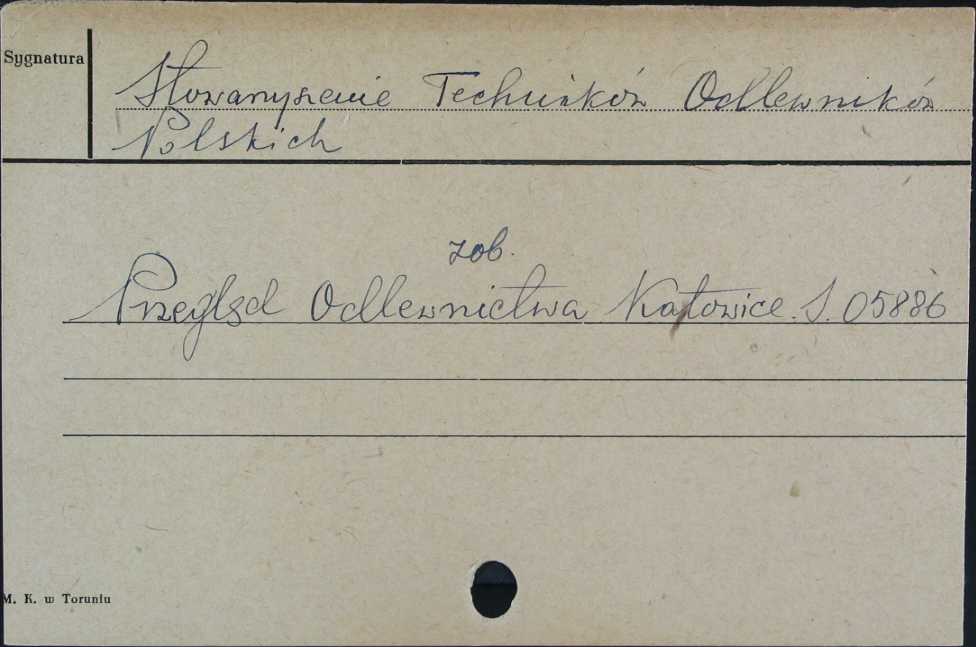 Sygnatura
Stowarzyszenie Techników Odlewników
Polskich
zob.
Przegląd Odlewnictwa Katowice. S. 05886
M. K. w Toruniu